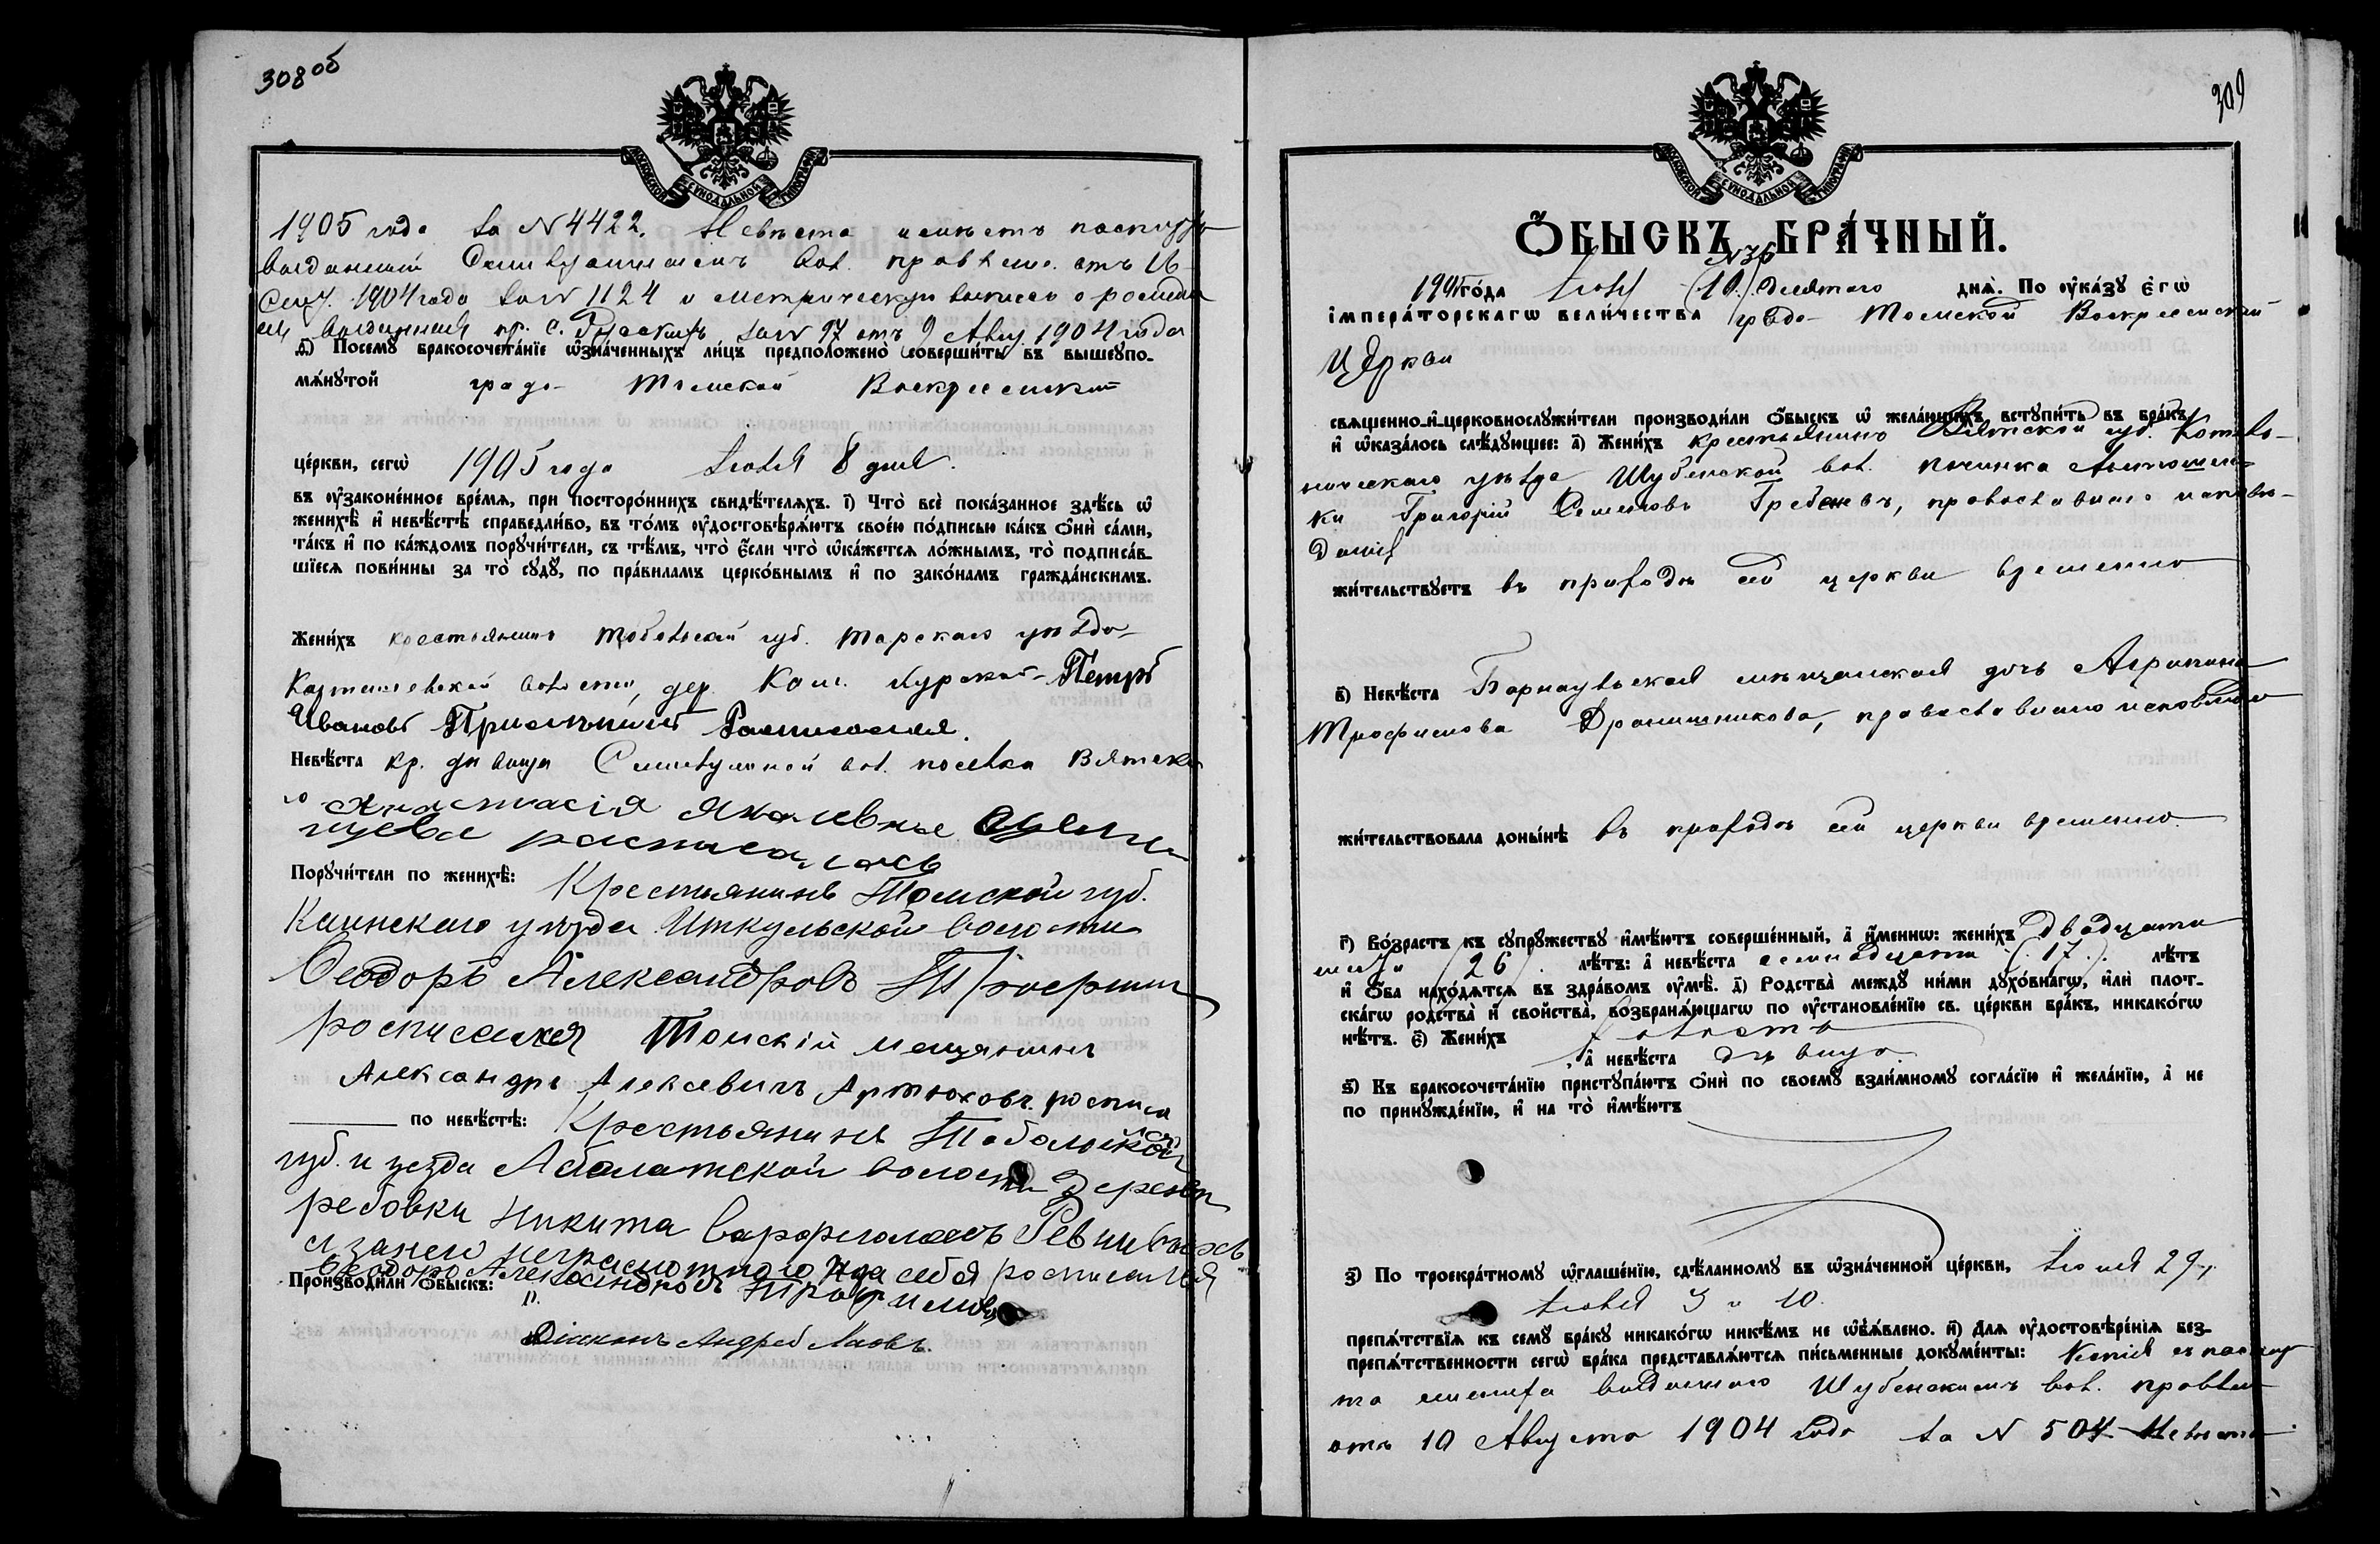 308 об
МОСКОВСКОЙ СѴНОДАЛЬНОЙ ТИПОГРАФІИ
1905 года за N 4422. Невѣста имѣетъ паспортъ
выданный вол. правлен. отъ
1904 года за N 1124 и метрическую выпись о рожден
ии выданная пр. с. за N 97 отъ 9 Авгу. 1904 года
д҃) Посемꙋ бракосочета́нїе ѡ҆зна́ченныхъ ли́цъ предположено̀ соверши́ть въ вышеꙋпо-
мѧ́нꙋтой градо- Томской Воскресенской
це́ркви, сегѡ̀ 1905 года Іюля 8 дня.
въ ᲂу҆зако́ненное вре́мѧ, при посторо́ннихъ свидѣ́телѧхъ. і҃) Что̀ всѐ пока́занное здѣ́сь ѡ҆
женихѣ̀ и҆ невѣ́стѣ справедли́во, въ то́мъ ᲂу҆достовѣрѧ́ютъ свое́ю по́дписью ка́къ ѻ҆нѝ са́ми,
та́къ и҆ по ка́ждомъ порꙋчи́тели, съ тѣ́мъ, что̀ є҆́сли что̀ ѡ҆ка́жетсѧ ло́жнымъ, то̀ подписа́в-
шїесѧ пови́нны за то̀ сꙋдꙋ̀, по пра́виламъ церко́внымъ и҆ по зако́намъ гражда́нскимъ.
Жени́хъ крестьянинъ Тобольской губ. Тарскаго уѣзда
Карташевской волости, дер. Кош. Курской Петръ
Ивановъ Росписался.
Невѣ́ста кр. дѣвица вол. поселка Вятска
го Анастасія Яковлевна
расписалась
Порꙋчи́тели по женихѣ̀: Крестьянинъ Томской губ.
Каинскаго уѣзда Иткульской волости
Ѳеодоръ Александровъ
росписался Томскій мещанинъ
Александръ Алексеевичъ Артюховъ росписа
по невѣ́стѣ: Крестьянинъ Тобольской
губ. и уезда Абалатской волости деревни
ребовки Никита Варфоломеевъ
а занего неграмотного и за себя росписался
Ѳеодоръ Александровъ Трофимовъ
Производи́ли ѻ҆́быскъ:
Діаконъ Андрей
309
МОСКОВСКОЙ СѴНОДАЛЬНОЙ ТИПОГРАФІИ
Ѻ҆́БЫСКЪ БРА́ЧНЫЙ.
N 36
1905 го́да Іюля (10) десятаго днѧ̀. По ᲂу҆ка́зꙋ є҆гѡ̀
і҆мпера́торскагѡ вели́чества градо- Томской Воскресенской
церкви
свѧщенно-и҆-церковнослꙋжи́тели производи́ли ѻ҆́быскъ ѡ҆ жела́ющихъ встꙋпи́ть въ бра́къ,
и҆ ѡ҆каза́лось слѣ́дꙋющее: а҃) Жени́хъ крестьянинъ Вятской губ. Котель-
ническаго уѣзда Шубенской вол. починка
ки Григорій Семеновъ Гребеневъ, православнаго исповѣ-
данія
жи́тельствꙋетъ въ приходѣ сей церкви временно
в҃) Невѣ́ста Барнаульская мѣщанская дочь Агрипина
Трофимова Дранишникова, православнаго исповѣданія
жи́тельствовала доны́нѣ въ приходѣ сей церкви временно.
г҃) Во́зрастъ къ сꙋпрꙋ́жествꙋ и҆мѣ́ютъ соверше́нный, а҆ и҆́меннѡ: жени́хъ двадцати
шести (26). лѣ́тъ: а҆ невѣ́ста семнадцати (17). лѣ́тъ
и҆ ѻ҆́ба нахо́дѧтсѧ въ здра́вомъ ᲂу҆мѣ̀. д҃) Родства̀ междꙋ̀ ни́ми дꙋхо́внагѡ, и҆лѝ плот-
ска́гѡ родства̀ и҆ свойства̀, возбранѧ́ющагѡ по ᲂу҆становле́нїю св. це́ркви бра́къ, никако́гѡ
нѣ́тъ. є҃) Жени́хъ холостъ
, а҆ невѣ́ста дѣвица.
ѕ҃) Къ бракосочета́нїю пристꙋпа́ютъ ѻ҆нѝ по своемꙋ̀ взаи́мномꙋ согла́сїю и҆ жела́нїю, а҆ не
по принꙋжде́нїю, и҆ на то̀ и҆мѣ́ютъ
з҃) По троекра́тномꙋ ѡ҆глаше́нїю, сдѣ́ланномꙋ въ ѡ҆зна́ченной це́ркви, Іюня 29,
Іюля 3 и 10.
препѧ́тствїѧ къ семꙋ̀ бра́кꙋ никако́гѡ никѣ́мъ не ѡ҆б̾ѧ́влено. и҃) Длѧ ᲂу҆достовѣре́нїѧ без-
препѧ́тственности сегѡ̀ бра́ка представлѧ́ютсѧ пи́сьменные докꙋме́нты: Копія съ паспор
та жениха выданнаго Шубенскимъ вол. правлен
отъ 10 Августа 1904 года за N 504 Невѣста